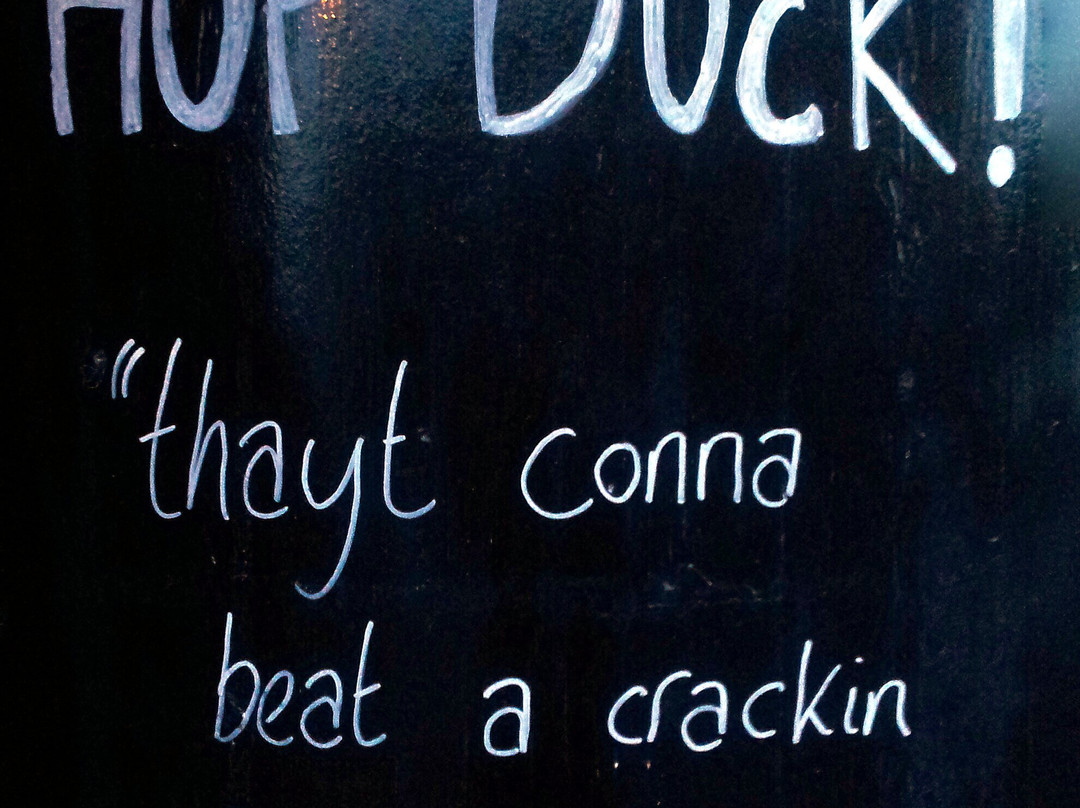 DUCK!
"thayt conna
beat a crackin